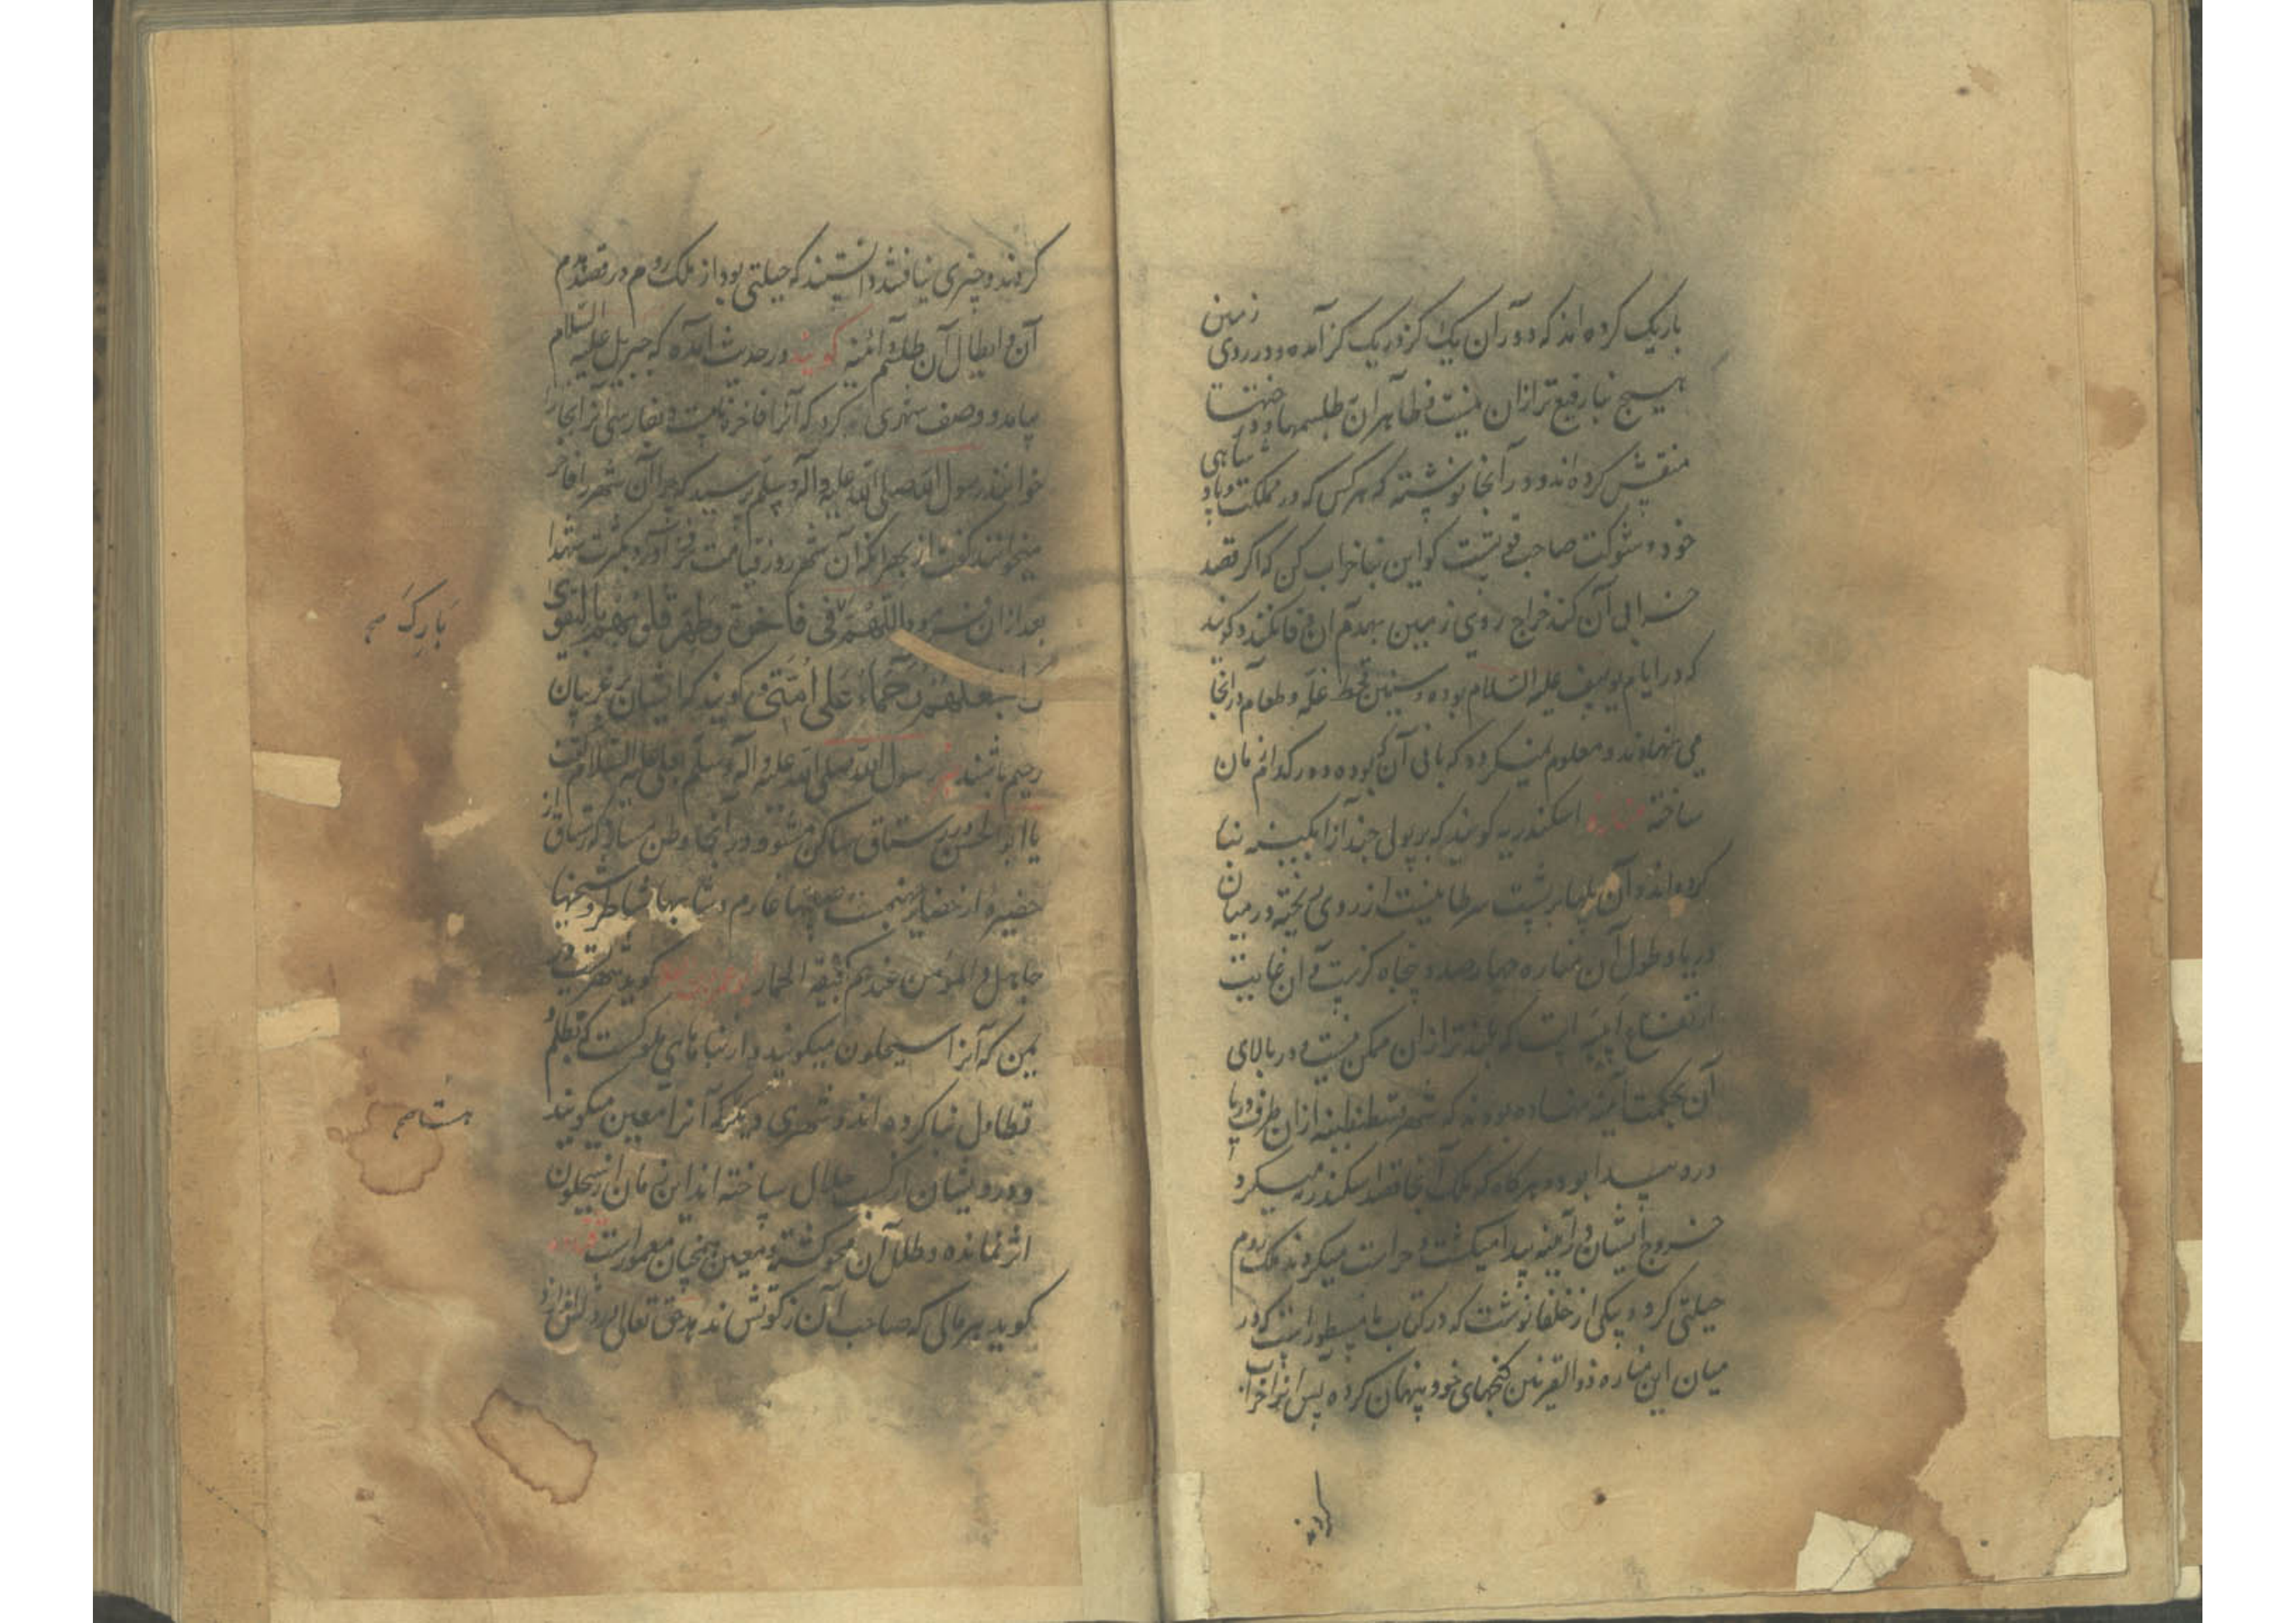 باریک کرده اند که دور آن یک گز در یک گز آمده و در روی زمین
هیچ بنا رفیع تر از آن نیست و ظاهر آن طلسمها و در
منقش کرده اند و در آنجا نوشته که هر کس که در مملکت و پادشاهی
خود و شوکت صاحب قوتست کو این بنا خراب کن که اگر قصد
خرابی آن کند خراج روی زمین بهدم آن وفا نکند و گویند
که در ایام یوسف علیه السلام بوده و سنین قحط غله و طعام در آنجا
می نهادند و معلوم نمیگردد که بانی آن که بوده و در کدام زمان
ساخته مناره اسکندریه گویند که بر پولی چند از آبگینه بنا
کرده اند و آن پلها بر پشت سرطانیست از روی ریخته در میان
دریا و طول آن مناره چهارصد و پنجاه گزست و آن غایت
ارتفاع است که بلندتر از آن ممکن نیست و در بالای
آن بحکمت آینه نهاده بودند که شهر قسطنطنیه از آن طرف دریا
درو پیدا بود و هرگاه که ملک آنجا قصد اسکندریه میکرد
خروج ایشان در آینه پیدا میگشت و حراست میکردند ملک روم
حیلتی کرد و بیکی از خلفا نوشت که در کتاب ما مسطور است که در
میان این مناره ذوالقرنین گنجهای خود پنهان کرده پس آنرا خراب
کردند
کردند و چیزی نیافتند دانستند که حیلتی بود از ملک روم در قصد هدم
آن و ابطال آن طلسم و آئینه گویند در حدیث آمده که جبریل علیه السلام
بیامد و وصف شهری کرد که آنرا فاخره نامست و بفارسی آنرا بخارا
خوانند رسول الله صلی الله علیه و آله و سلم پرسید که چرا آن شهر را فاخره
میخوانند گفت از بهر آنکه آن شهر روز قیامت فخر آورد بکثرت شهدا
بعد از آن فرمود اللهم فی فاخرة و طهر قلوبهم بالتقوی
و اجعلهم رحماء علی امتی و گویند که ایشان بر غریبان
رحیم باشند رسول الله صلی الله علیه و آله و سلم بعلی علیه السلام گفت
یا ابا الحسن برستاق ساکن مشو و در آنجا وطن مساز که رستاق از
حضیره از حضایر جهنمست صبیها عارم و شابها شاطر و شیخها
جاهل و المؤمن عندهم کجیفة الحمار گوید شهریست در
یمن که آنرا سیحلون میگویند و از بناهای ملوکست که بظلم و
تطاول بنا کرده اند و شهری دیگر که آنرا معین میگویند
و درویشان از کسب حلال ساخته اند این زمان از سیحلون
اثر نمانده و طلل آن محو گشته و معین همچنان معمور است
گوید هر مالی که صاحب آن زکوتش ندهد حق تعالی
بارک صح